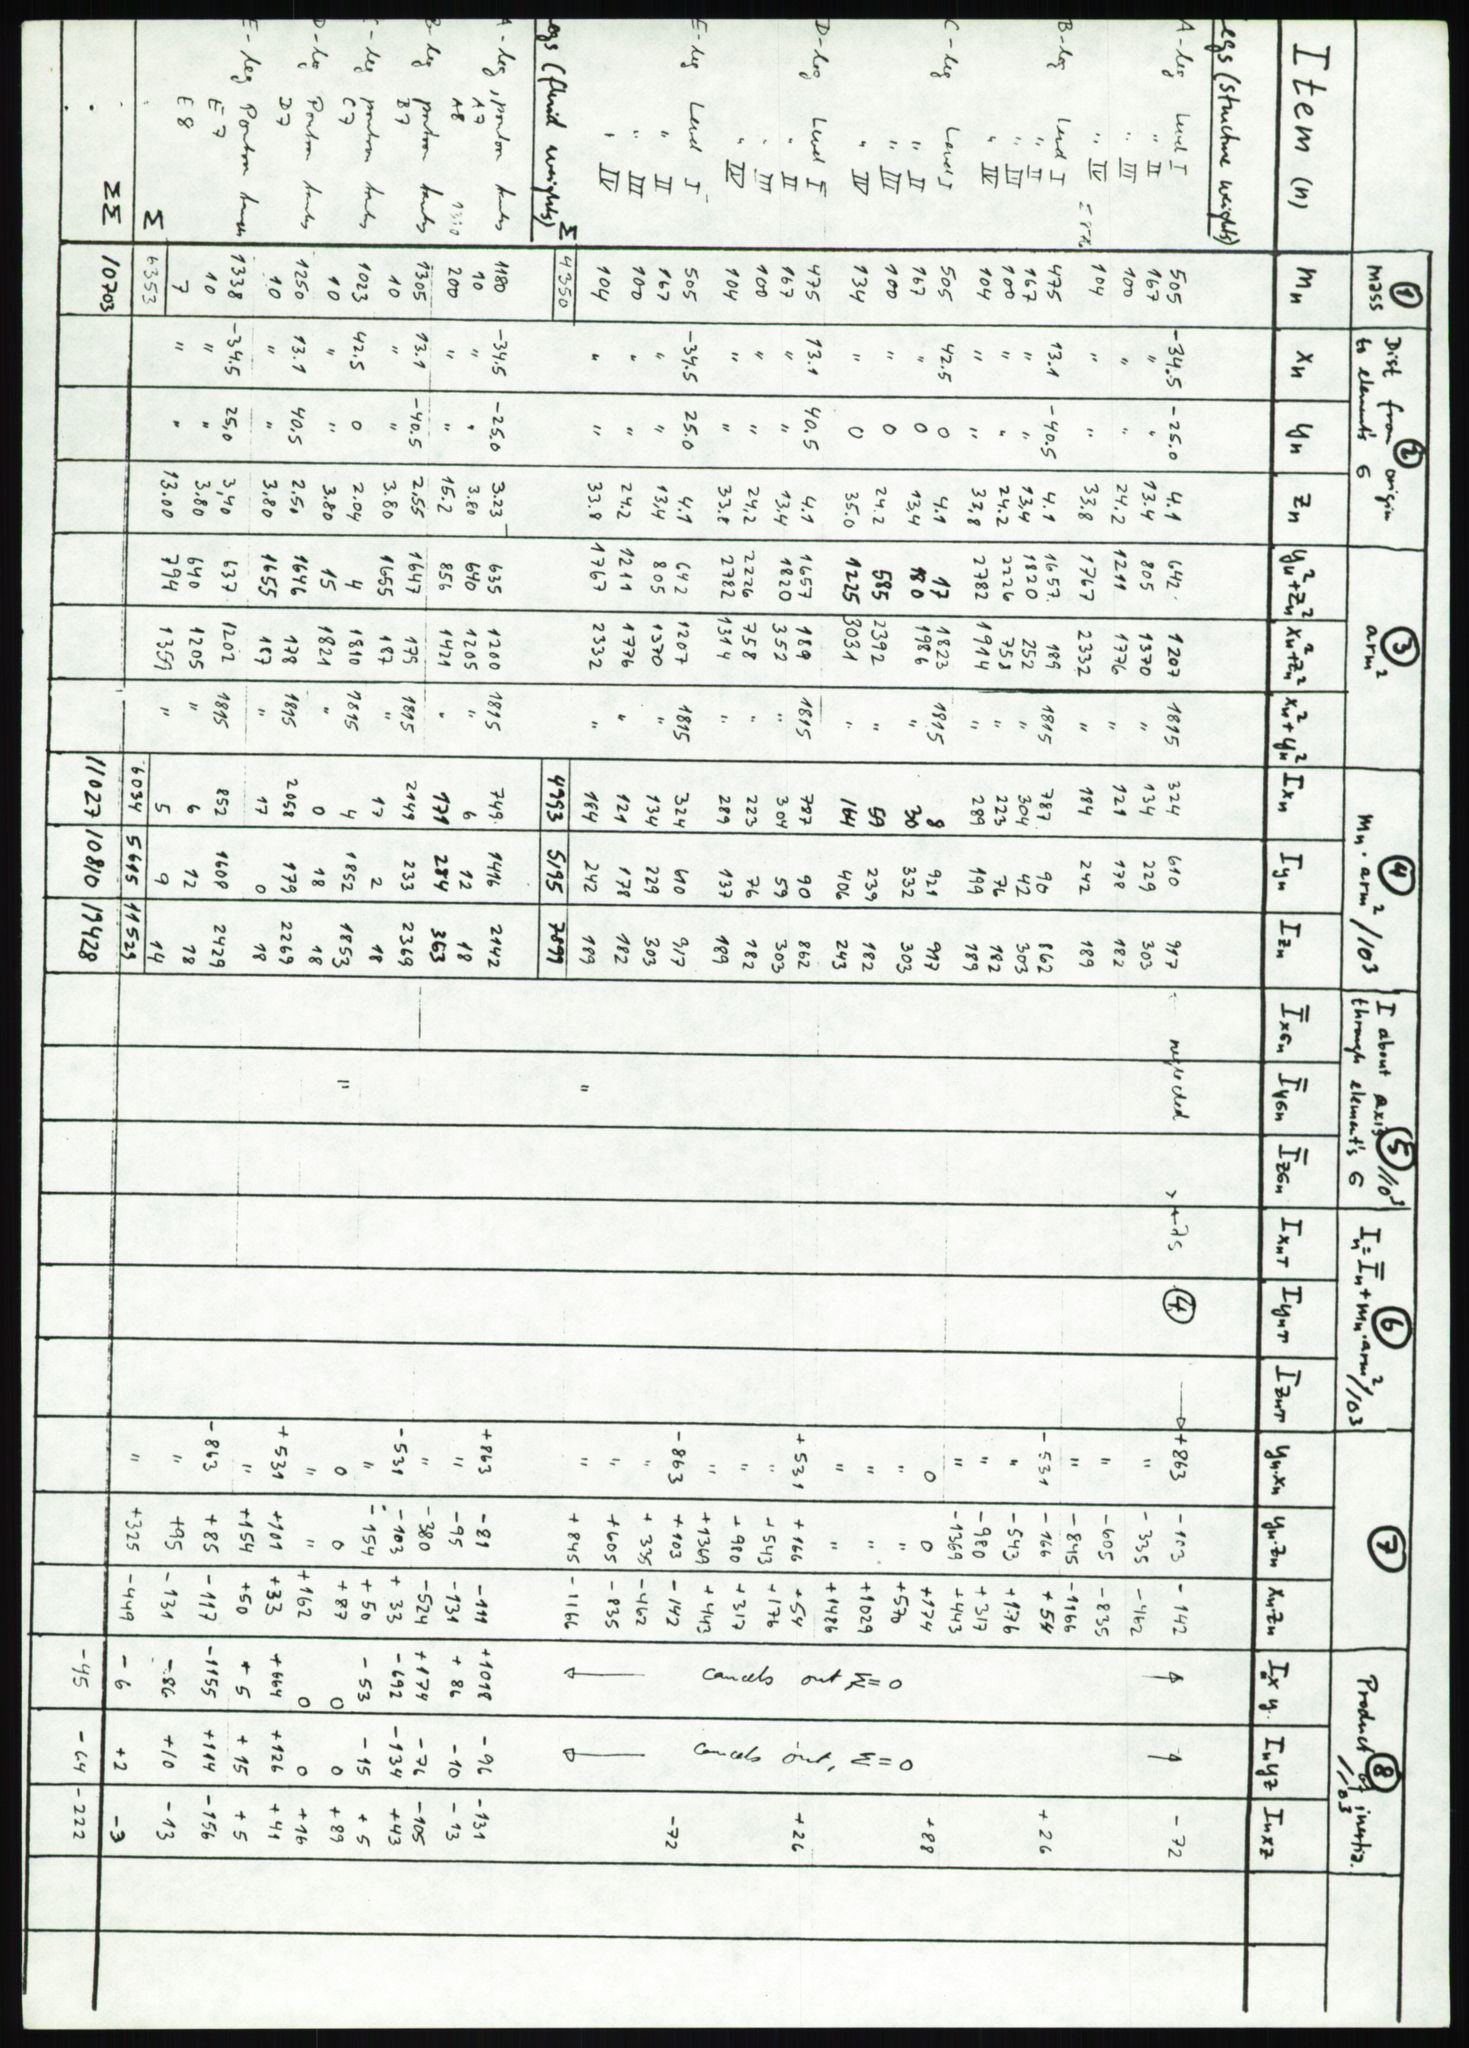 ① mass | ② Dist from origin to element's G | ③ arm² | ④ mn · arm²/10³ | ⑤ I about axis //10³ through element's G | ⑥ In = Īn + mn·arm²/10³ | ⑦ | ⑧ Product of inertia //10³
Item (n) | mn | xn | yn | zn | yn²+zn² | xn²+zn² | xn²+yn² | Ixn | Iyn | Izn | ĪxGn | ĪyGn | ĪzGn | IxnT | IynT | IznT | yn·xn | yn·zn | xn·zn | Inxy | Inyz | Inxz
egs (structure weights)
A-leg Level I 505 -34.5 -25.0 4.1 641 1207 1815 324 610 917 neglected → as ④ → +863 -103 -142 -72
" II 167 " " 13.4 805 1370 " 134 229 303 " -335 -462
" III 100 " " 24.2 1211 1776 " 121 178 182 " -605 -835
" IV 104 " " 33.8 1767 2332 " 184 242 189 " -845 -1166
B-leg Level I 475 13.1 -40.5 4.1 1657 189 1815 787 90 862 -531 -166 +54 +26
" II 167 " " 13.4 1820 252 " 304 42 303 " -543 +176
" III 100 " " 24.2 2226 758 " 223 76 182 " -980 +317
" IV 104 " " 33.8 2782 1914 " 289 199 189 " -1369 +443
C-leg Level I 505 42.5 0 4.1 17 1823 1815 8 921 917 0 0 +174 +88
" II 167 " 0 13.4 180 1986 " 30 332 303 " " +570
" III 100 " 0 24.2 585 2392 " 59 239 182 " " +1029
" IV 134 " 0 35.0 1225 3031 " 164 406 243 " " +1486
cancels out Σ=0
cancels out, Σ=0
D-leg Level I 475 13.1 40.5 4.1 1657 189 1815 787 90 862 +531 +166 +54 +26
" II 167 " " 13.4 1820 352 " 304 59 303 " +543 +176
" III 100 " " 24.2 2226 758 " 223 76 182 " +980 +317
" IV 104 " " 33.8 2782 1314 " 289 137 189 " +1369 +443
E-leg Level I 505 -34.5 25.0 4.1 642 1207 1815 324 610 917 -863 +103 -142 -72
" II 167 " " 13.4 805 1370 " 134 229 303 " +335 -462
" III 100 " " 24.2 1211 1776 " 121 178 182 " +605 -835
" IV 104 " " 33.8 1767 2332 " 184 242 189 " " +845 -1166
Σ 4350 4993 5195 7899
egs (fluid weights)
A-leg, ponton tanks 1180 -34.5 -25.0 3.23 635 1200 1815 749 1416 2142 +863 -81 -111 +1018 -96 -131
A7 10 " " 3.80 640 1205 " 6 12 18 " -95 -131 +86 -10 -13
A8 200 " " 15.2 856 1421 " 171 284 363 " -380 -524 +174 -76 -105
B-leg ponton tanks 1305 13.1 -40.5 2.55 1647 175 1815 2149 233 2369 -531 -103 +33 -692 -134 +43
B7 10 " " 3.80 1655 187 " 17 2 18 " -154 +50 -53 -15 +5
C-leg ponton tanks 1023 42.5 0 2.04 4 1810 1815 4 1852 1853 0 0 +87 0 0 +89
C7 10 " " 3.80 15 1821 " 0 18 18 " " +162 0 0 +16
D-leg Ponton tanks 1250 13.1 40.5 2.50 1646 178 1815 2058 179 2269 +531 +101 +33 +664 +126 +41
D7 10 " " 3.80 1655 187 " 17 0 18 " +154 +50 +5 +15 +5
E-leg Ponton tanks 1338 -34.5 25.0 3,40 637 1202 1815 852 1608 2429 -863 +85 -117 -1155 +114 -156
E7 10 " " 3.80 640 1205 " 6 12 18 " +95 -131 -86 +10 -13
E8 7 " " 13.00 794 1359 " 5 9 14 " +325 -449 -6 +2 -3
Σ 6353 6034 5615 11529
ΣΣ 10703 11027 10810 19428 -45 -64 -222